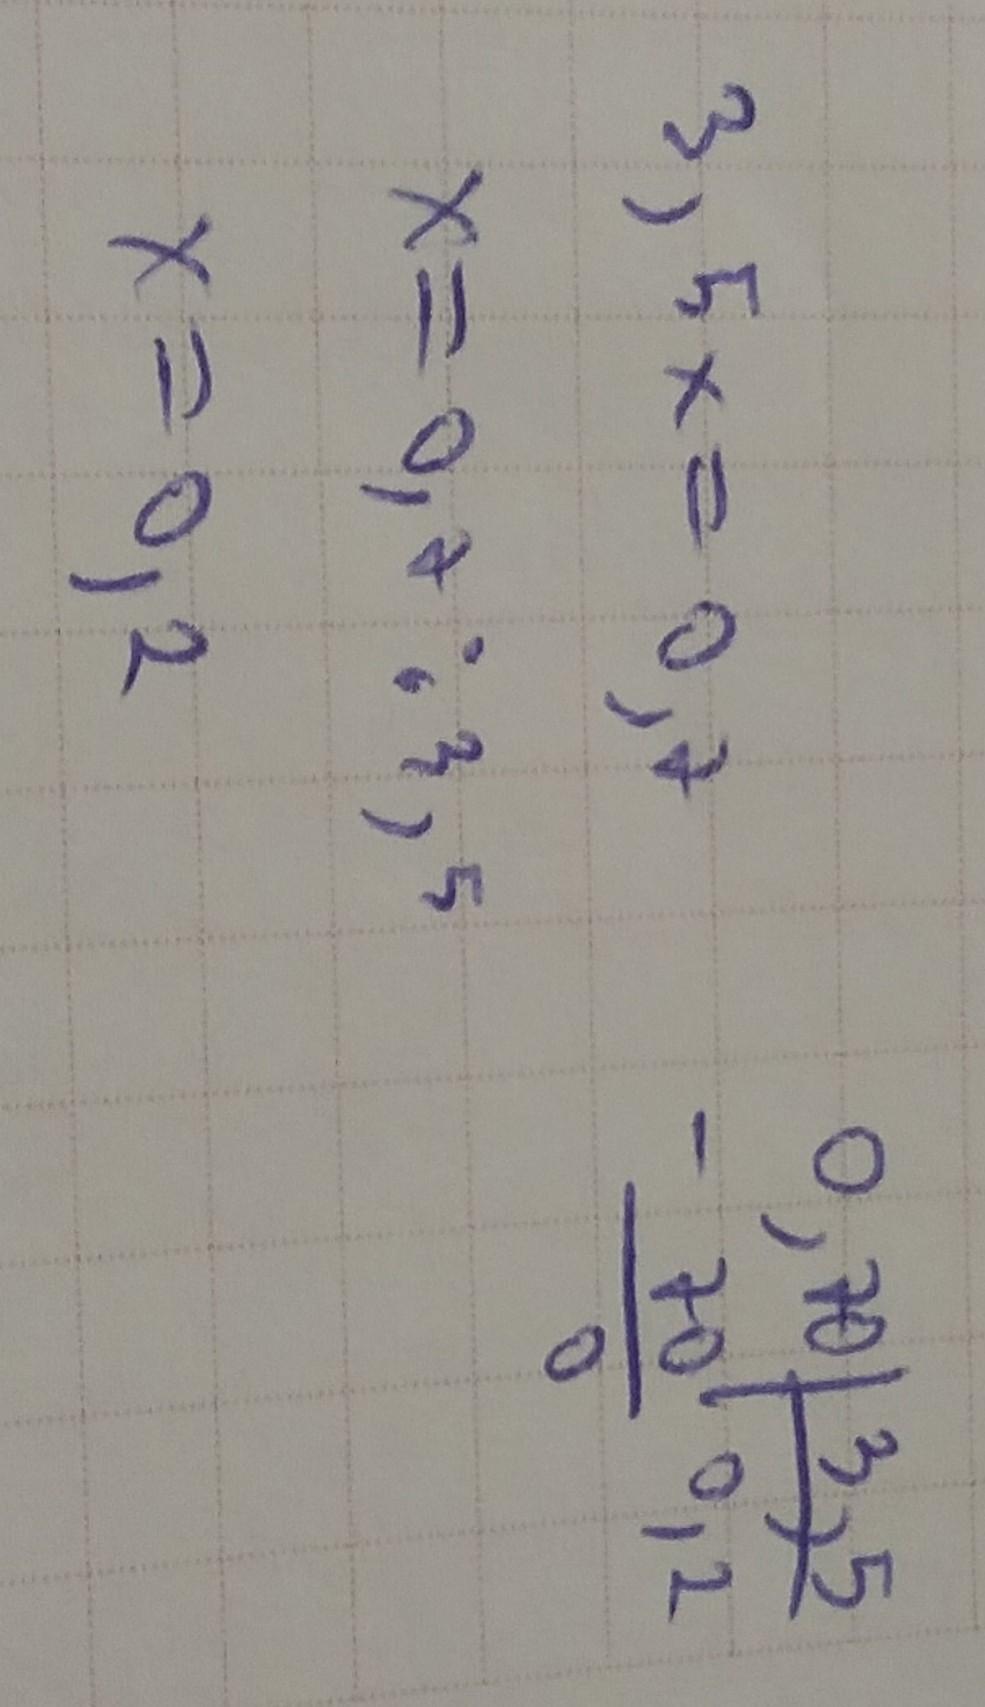 3,5x=0,7
x=0,7:3,5
x=0,2
0,70 3,5
- 70 0,2
0